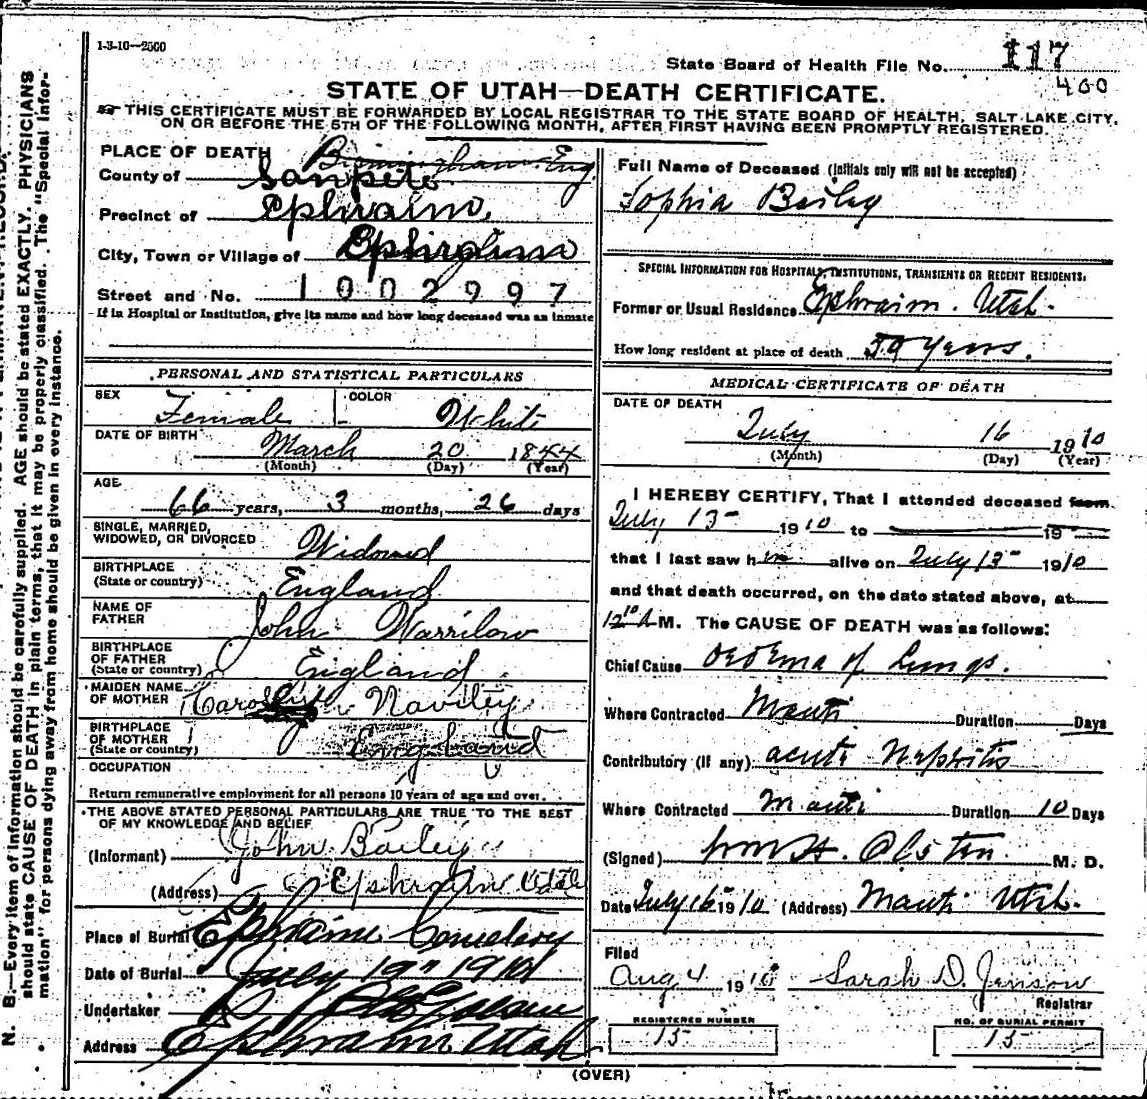 1-3-10—2500
State Board of Health File No. 117
400
STATE OF UTAH—DEATH CERTIFICATE.
THIS CERTIFICATE MUST BE FORWARDED BY LOCAL REGISTRAR TO THE STATE BOARD OF HEALTH, SALT LAKE CITY,
ON OR BEFORE THE 5TH OF THE FOLLOWING MONTH, AFTER FIRST HAVING BEEN PROMPTLY REGISTERED.
PLACE OF DEATH Birmingham Eng
County of Sanpete
Precinct of Ephraim
City, Town or Village of Ephraim
Street and No. 1002997
If in Hospital or Institution, give its name and how long deceased was an inmate
PERSONAL AND STATISTICAL PARTICULARS
SEX Female COLOR White
DATE OF BIRTH March 20 1844
(Month) (Day) (Year)
AGE
66 years, 3 months, 26 days
SINGLE, MARRIED,
WIDOWED, OR DIVORCED Widowed
BIRTHPLACE
(State or country) England
NAME OF
FATHER John Warrilow
BIRTHPLACE
OF FATHER
(State or country) England
MAIDEN NAME
OF MOTHER
BIRTHPLACE
OF MOTHER
(State or country) England
OCCUPATION
Return remunerative employment for all persons 10 years of age and over.
THE ABOVE STATED PERSONAL PARTICULARS ARE TRUE TO THE BEST
OF MY KNOWLEDGE AND BELIEF
(Informant) John Bailey
(Address) Ephraim Utah
Place of Burial Ephraim Cemetery
Date of Burial July 19" 1910
Undertaker
Address Ephraim Utah
Full Name of Deceased (Initials only will not be accepted)
Sophia Bailey
SPECIAL INFORMATION FOR HOSPITALS, INSTITUTIONS, TRANSIENTS OR RECENT RESIDENTS.
Former or Usual Residence Ephraim. Utah.
How long resident at place of death 59 years.
MEDICAL CERTIFICATE OF DEATH
DATE OF DEATH
July 16 1910
(Month) (Day) (Year)
I HEREBY CERTIFY, That I attended deceased from
July 13 1910 to 19
that I last saw h alive on July 13 1910
and that death occurred, on the date stated above, at
12 10 A M. The CAUSE OF DEATH was as follows:
Chief Cause Oedema of Lungs.
Where Contracted Manti Duration Days
Contributory (if any) acute Nephritis
Where Contracted Manti Duration 10 Days
(Signed) Wm H. Olsten. M. D.
Date July 16 1910 (Address) Manti Utah.
Filed
Aug 4 1910 Sarah D. Jenson
Registrar
REGISTERED NUMBER
15
NO. OF BURIAL PERMIT
15
(OVER)
N. B.—Every item of information should be carefully supplied. AGE should be stated EXACTLY. PHYSICIANS
should state CAUSE OF DEATH in plain terms, that it may be properly classified. The "Special Infor-
mation" for persons dying away from home should be given in every instance.